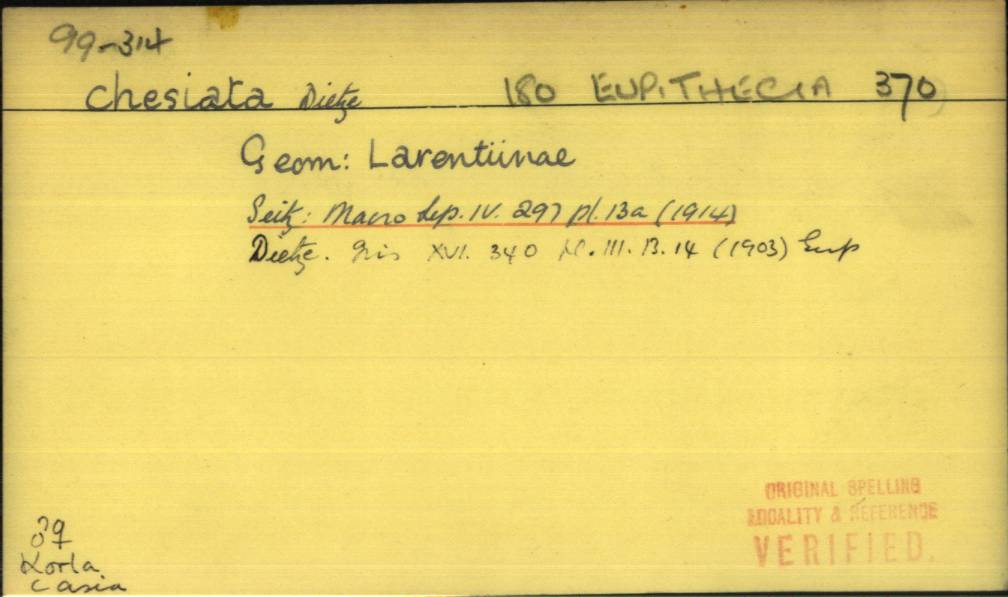 99-314
chesiata Dietze 180 EUPITHECIA 370
Geom: Larentiinae
Seitz: Macro Lep. IV. 297 pl. 13a (1914)
Dietze. Iris XVI. 340 Pl. III. B. 14 (1903) Eup
ORIGINAL SPELLING
LOCALITY & REFERENCE
VERIFIED.
♂♀
Korla
C Asia